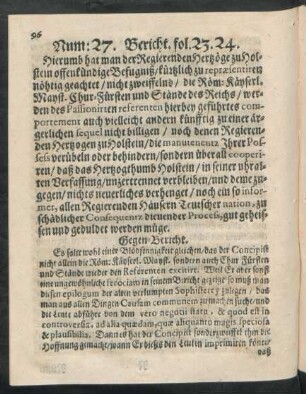 96
Num: 27. Bericht. fol. 23. 24.
Hierumb hat man der Regierenden Hertzöge zu Hol-
stein offenkündige Befugnuß/ kürtzlich zu repræsentiren
nöhtig geachtet/ nicht zweiffelnd/ die Röm: Käyserl.
Mayst. Chur-Fürsten und Stände des Reichs/ wer-
den des Passionirten referenten hierbey geführtes com-
portement auch vielleicht andern künfftig zu einer är-
gerlichen sequel nicht billigen/ noch denen Regieren-
den Hertzogen zu Holstein/ die manutenentz Ihrer Pos-
sess verübeln oder behindern/ sondern überall cooperi-
ren/ daß das Hertzogthumb Holstein/ in seiner uhral-
ten Verfassung/ unzertrennet verbleiben/ und deme zu-
gegen/ nichts neuerliches verhenget/ noch ein so infor-
mer, allen Regierenden Häusern Teutscher nation, zu
schädlicher Consequentz dienender Process, gut geheis-
sen und geduldet werden müge.
Gegen-Bericht.
Es solte wohl einer Blödsinnigkeit gleichen/ daß der Concipist
nicht allein die Röm: Käyserl. Mayst. sondern auch Chur Fürsten
und Stände wieder den Referenten excitire. Weil Er aber sonst
eine ungewöhnliche ferociam in seinem Bericht gezeiget so muß man
diesen epilogum der alten verlumpten Sophisterey zulegen/ daß
man aus allen Dingen Causam communem zu machen suche/ und
die Leute abführe von dem vero negotii statu, & quod est in
controversia, ad alia quædam, quæ aliquanto magis speciosa
& plausibilia. Dann es hat der Concipist sonder zweiffel ihm die
Hoffnung gemachet/ wann Er dieses den Leuten imprimiren könte/
daß